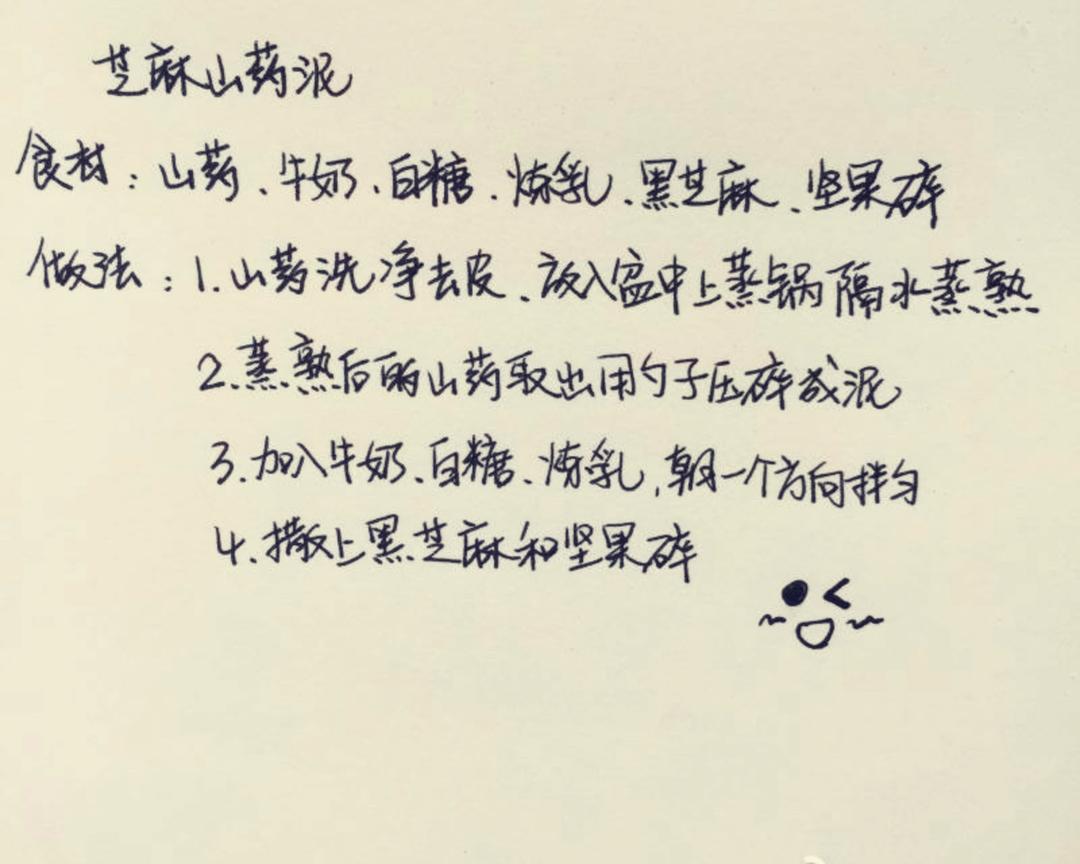 芝麻山药泥
食材：山药、牛奶、白糖、炼乳、黑芝麻、坚果碎
做法：1.山药洗净去皮、放入盆中上蒸锅隔水蒸熟
2.蒸熟后的山药取出用勺子压碎成泥
3.加入牛奶、白糖、炼乳,朝一个方向拌匀
4.撒上黑芝麻和坚果碎